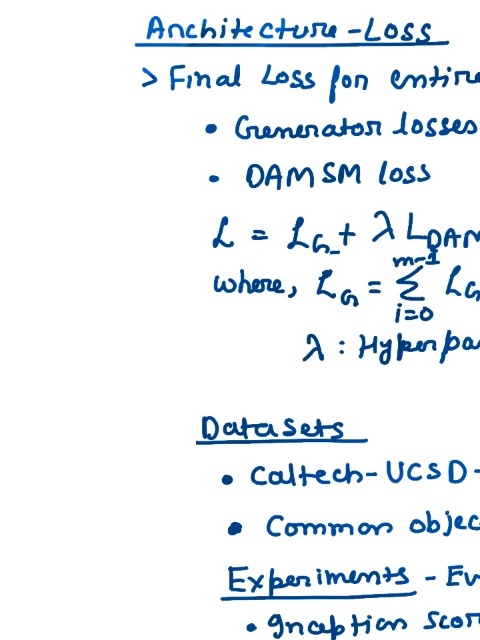 Architecture - Loss
> Final Loss for entire
• Generator losses
• DAMSM loss
L = L_G + λ L_DAM
where, L_G = Σ_{i=0}^{m-1} L_G
λ : Hyperpa
Datasets
• Caltech-UCSD-
• Common objec
Experiments - Ev
• Inception scor